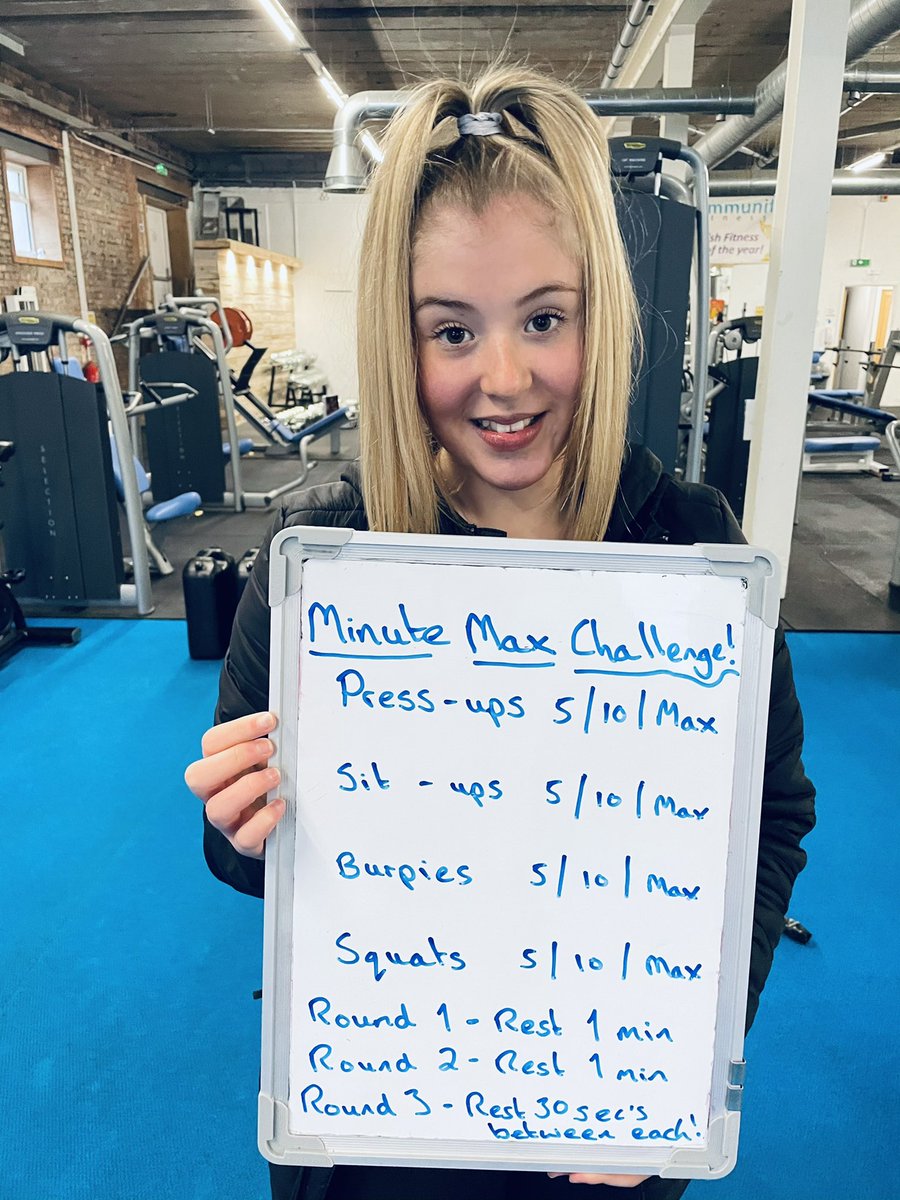 mmunit
sh Fitness
of the year!
SELECTION
Minute Max Challenge!
Press-ups 5/10/Max
Sit-ups 5/10/Max
Burpies 5/10/Max
Squats 5/10/Max
Round 1 - Rest 1 min
Round 2 - Rest 1 min
Round 3 - Rest 30sec's
between each!